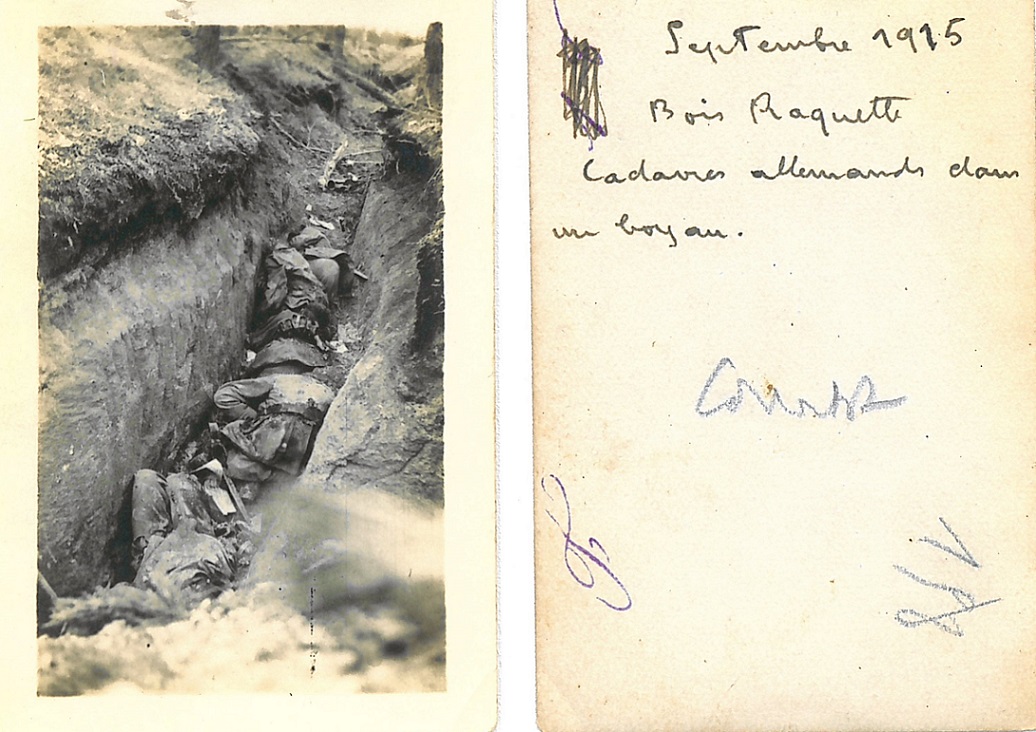 Septembre 1915
Bois Raquette
Cadavres allemands dans
un boyau.